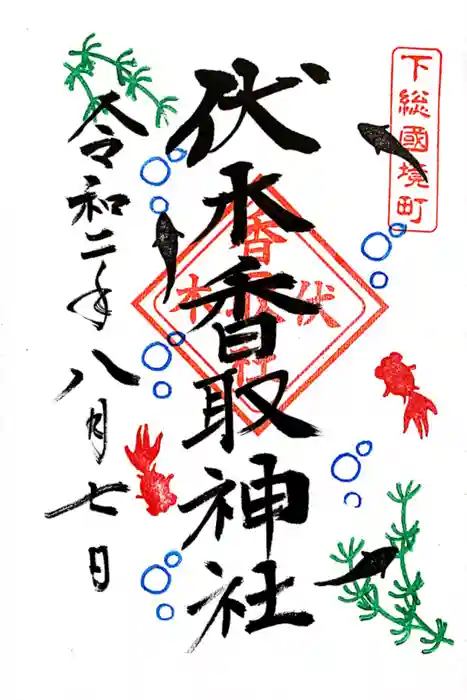 下総國境町
伏木香取神社
令和二年八月七日